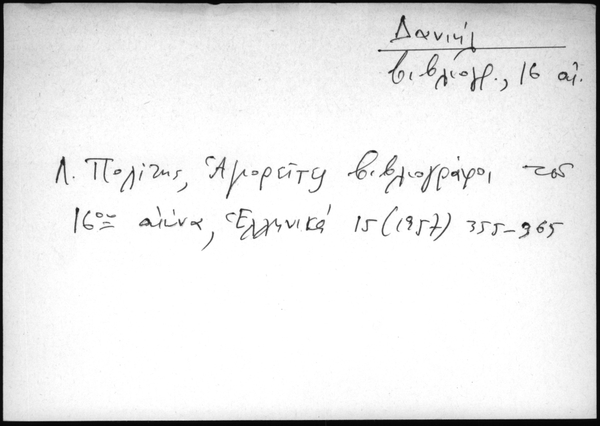 Δανιήλ
βιβλιογρ., 16 αἰ.
Λ. Πολίτης, Ἁγιορεῖτες βιβλιογράφοι τοῦ
16ου αἰώνα, Ἑλληνικά 15 (1957) 355-365